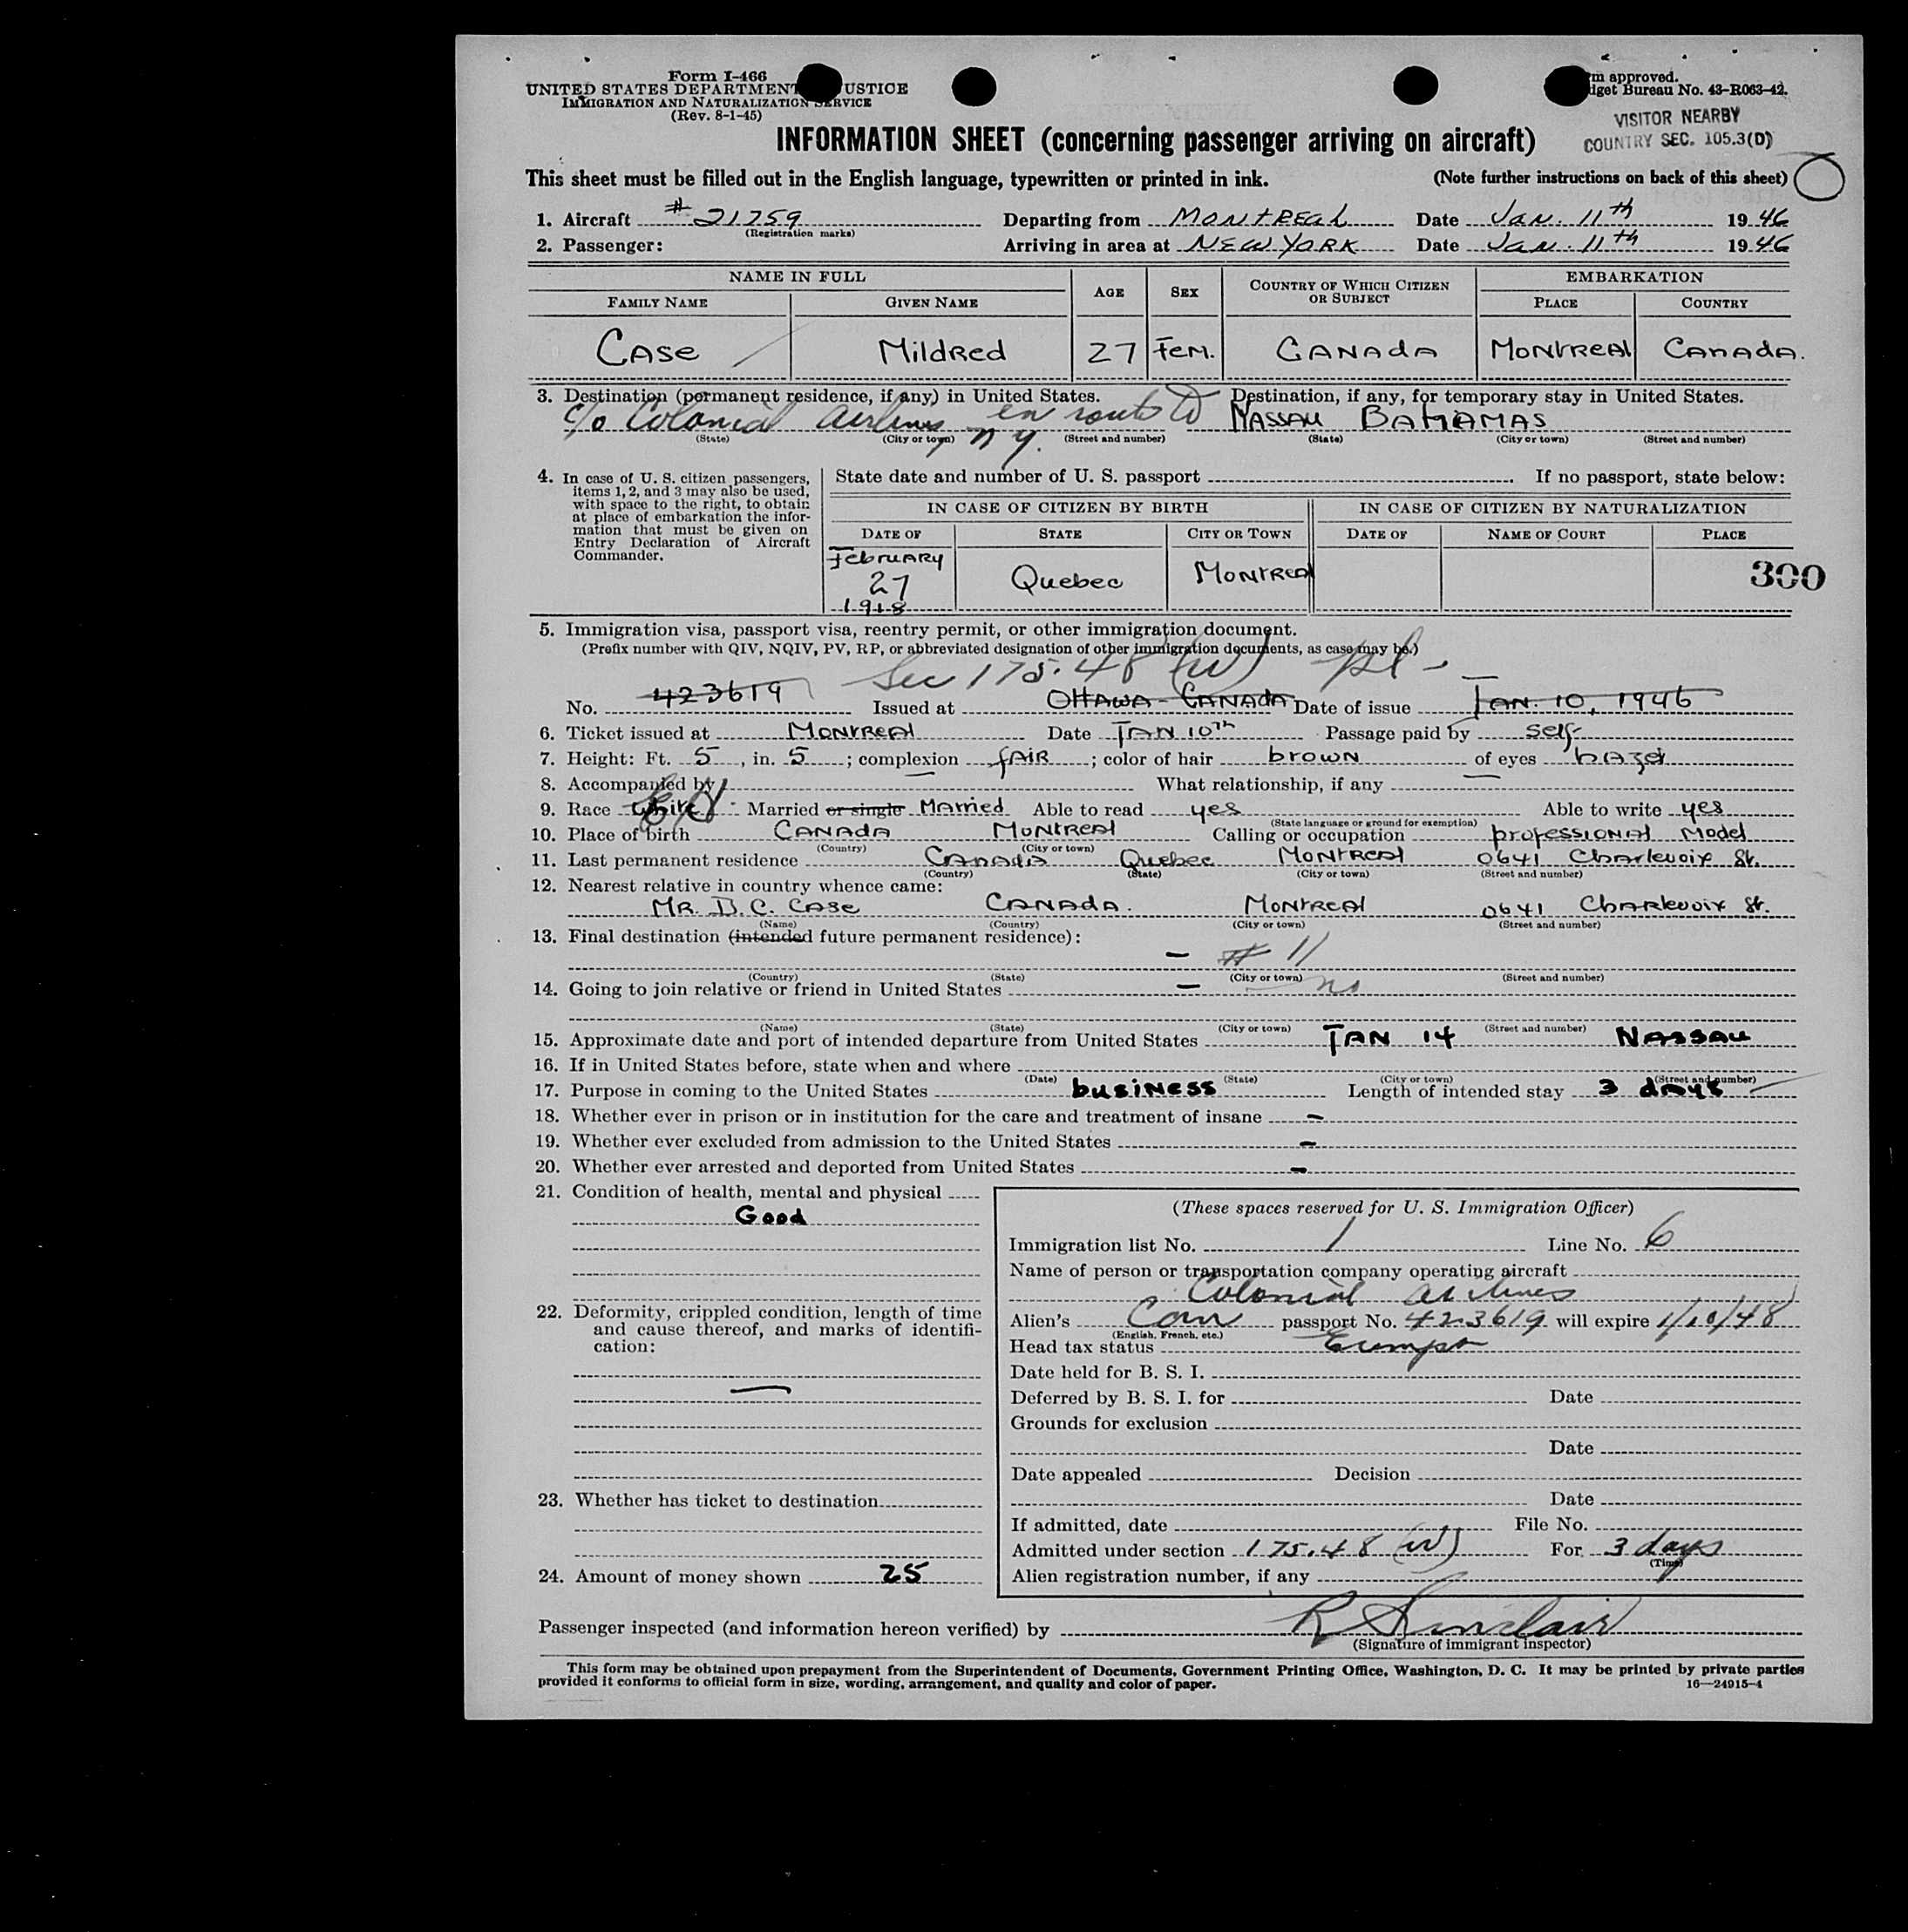 Form I-466
UNITED STATES DEPARTMENT USTICE
IMMIGRATION AND NATURALIZATION SERVICE
(Rev. 8-1-45)
m approved.
dget Bureau No. 43-R063-42.
VISITOR NEARBY
COUNTRY SEC. 105.3(D)
INFORMATION SHEET (concerning passenger arriving on aircraft)
This sheet must be filled out in the English language, typewritten or printed in ink. (Note further instructions on back of this sheet)
1. Aircraft # 21759 Departing from MONTREAL Date JAN. 11th 1946
(Registration marks)
2. Passenger: Arriving in area at NEW YORK Date JAN. 11th 1946
NAME IN FULL AGE SEX COUNTRY OF WHICH CITIZEN OR SUBJECT EMBARKATION
FAMILY NAME GIVEN NAME PLACE COUNTRY
CASE Mildred 27 Fem. CANADA MONTREAL CANADA.
3. Destination (permanent residence, if any) in United States. Destination, if any, for temporary stay in United States.
c/o Colonial Airlines en route to NASSAU BAHAMAS
N.Y.
(State) (City or town) (Street and number) (State) (City or town) (Street and number)
4. In case of U. S. citizen passengers, items 1, 2, and 3 may also be used, with space to the right, to obtain at place of embarkation the information that must be given on Entry Declaration of Aircraft Commander.
State date and number of U. S. passport If no passport, state below:
IN CASE OF CITIZEN BY BIRTH IN CASE OF CITIZEN BY NATURALIZATION
DATE OF STATE CITY OR TOWN DATE OF NAME OF COURT PLACE
February 27 1918 Quebec MONTREAL 300
5. Immigration visa, passport visa, reentry permit, or other immigration document.
(Prefix number with QIV, NQIV, PV, RP, or abbreviated designation of other immigration documents, as case may be.)
Sec 175.48 (W)
No. 423619 Issued at OTTAWA - CANADA Date of issue JAN. 10, 1946
6. Ticket issued at MONTREAL Date JAN 10th Passage paid by self
7. Height: Ft. 5, in. 5; complexion fAIR; color of hair brown of eyes hazel
8. Accompanied by What relationship, if any
9. Race white Married or single Married Able to read yes Able to write yes
(State language or ground for exemption)
10. Place of birth CANADA MONTREAL Calling or occupation professional Model
(Country) (City or town)
11. Last permanent residence CANADA Quebec MONTREAL 0641 Charlevoix St.
(Country) (State) (City or town) (Street and number)
12. Nearest relative in country whence came:
MR. D. C. CASE CANADA. MONTREAL 0641 Charlevoix St.
(Name) (Country) (City or town) (Street and number)
13. Final destination (intended future permanent residence):
- # 11
(Country) (State) (City or town) (Street and number)
14. Going to join relative or friend in United States - no
(Name) (State) (City or town) (Street and number)
15. Approximate date and port of intended departure from United States JAN 14 NASSAU
16. If in United States before, state when and where
(Date) (State) (City or town) (Street and number)
17. Purpose in coming to the United States business Length of intended stay 3 days
18. Whether ever in prison or in institution for the care and treatment of insane -
19. Whether ever excluded from admission to the United States -
20. Whether ever arrested and deported from United States -
21. Condition of health, mental and physical
Good
22. Deformity, crippled condition, length of time and cause thereof, and marks of identification:
—
23. Whether has ticket to destination
24. Amount of money shown 25
(These spaces reserved for U. S. Immigration Officer)
Immigration list No. 1 Line No. 6
Name of person or transportation company operating aircraft
Colonial Airlines
Alien's Can passport No. 423619 will expire 1/10/48
(English, French, etc.)
Head tax status Exempt
Date held for B. S. I.
Deferred by B. S. I. for Date
Grounds for exclusion
Date
Date appealed Decision
Date
If admitted, date File No.
Admitted under section 175.48 (W) For 3 days
(Time)
Alien registration number, if any
Passenger inspected (and information hereon verified) by R Sinclair
(Signature of immigrant inspector)
This form may be obtained upon prepayment from the Superintendent of Documents, Government Printing Office, Washington, D. C. It may be printed by private parties
provided it conforms to official form in size, wording, arrangement, and quality and color of paper. 16—24915-4